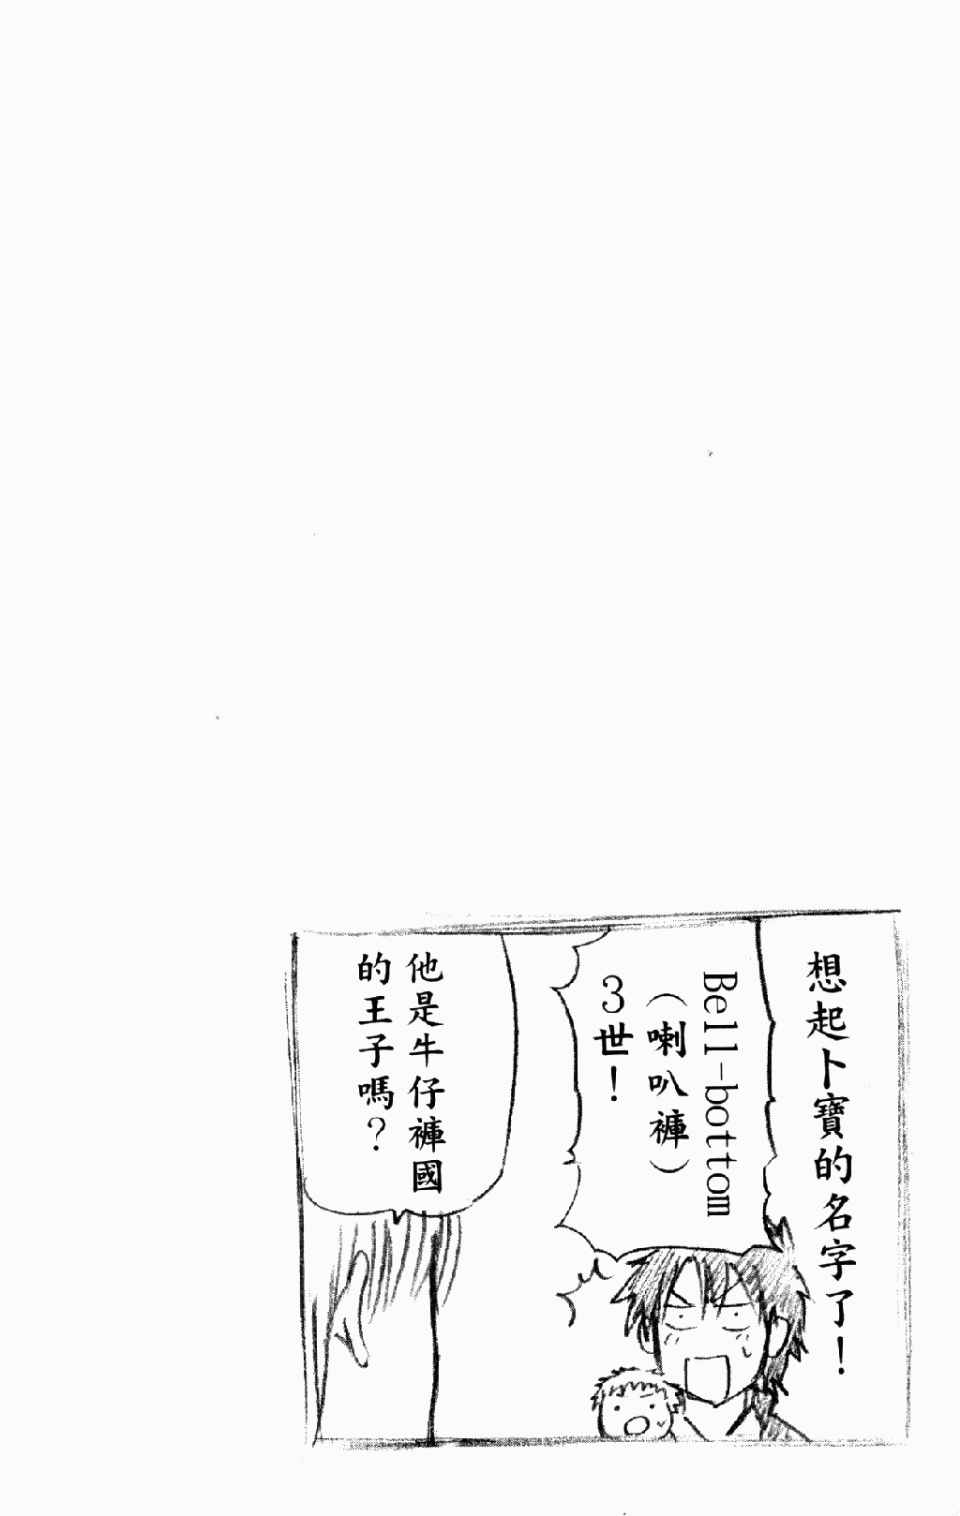 想起卜寶的名字了！
Bell-bottom
（喇叭褲）
3世！
他是牛仔褲國
的王子嗎？